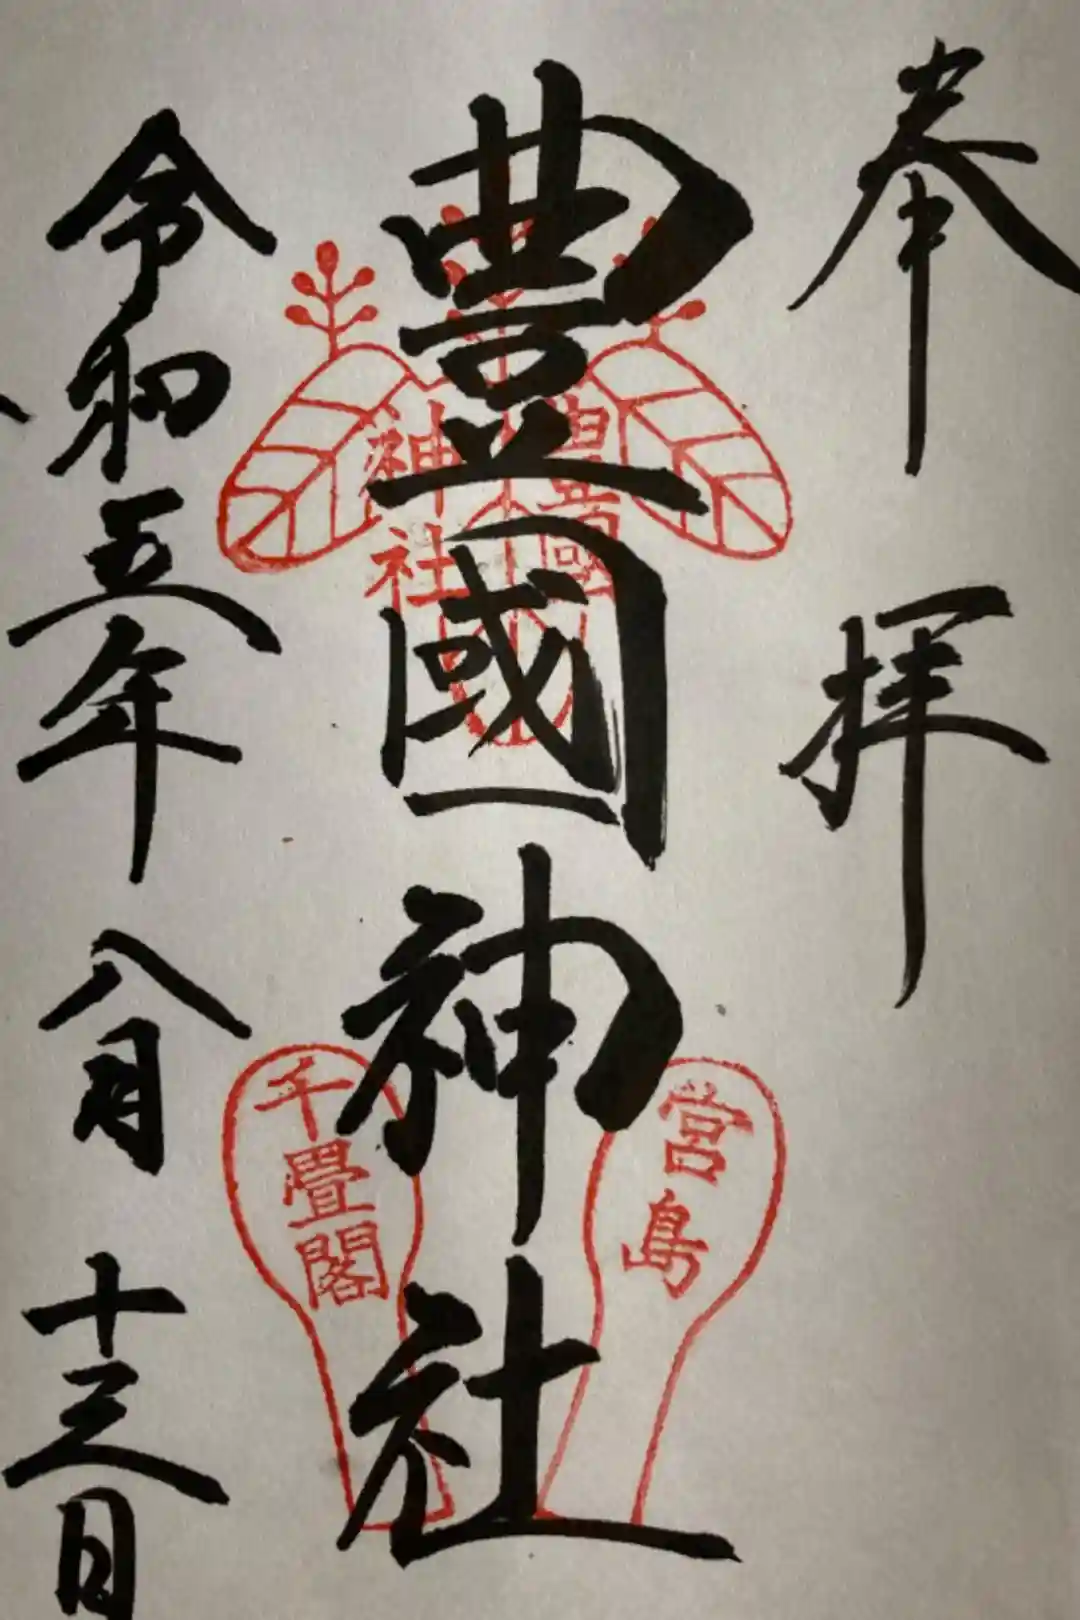 奉拝
豊國神社
豊國
神社
宮島
千畳閣
令和五年八月十三日